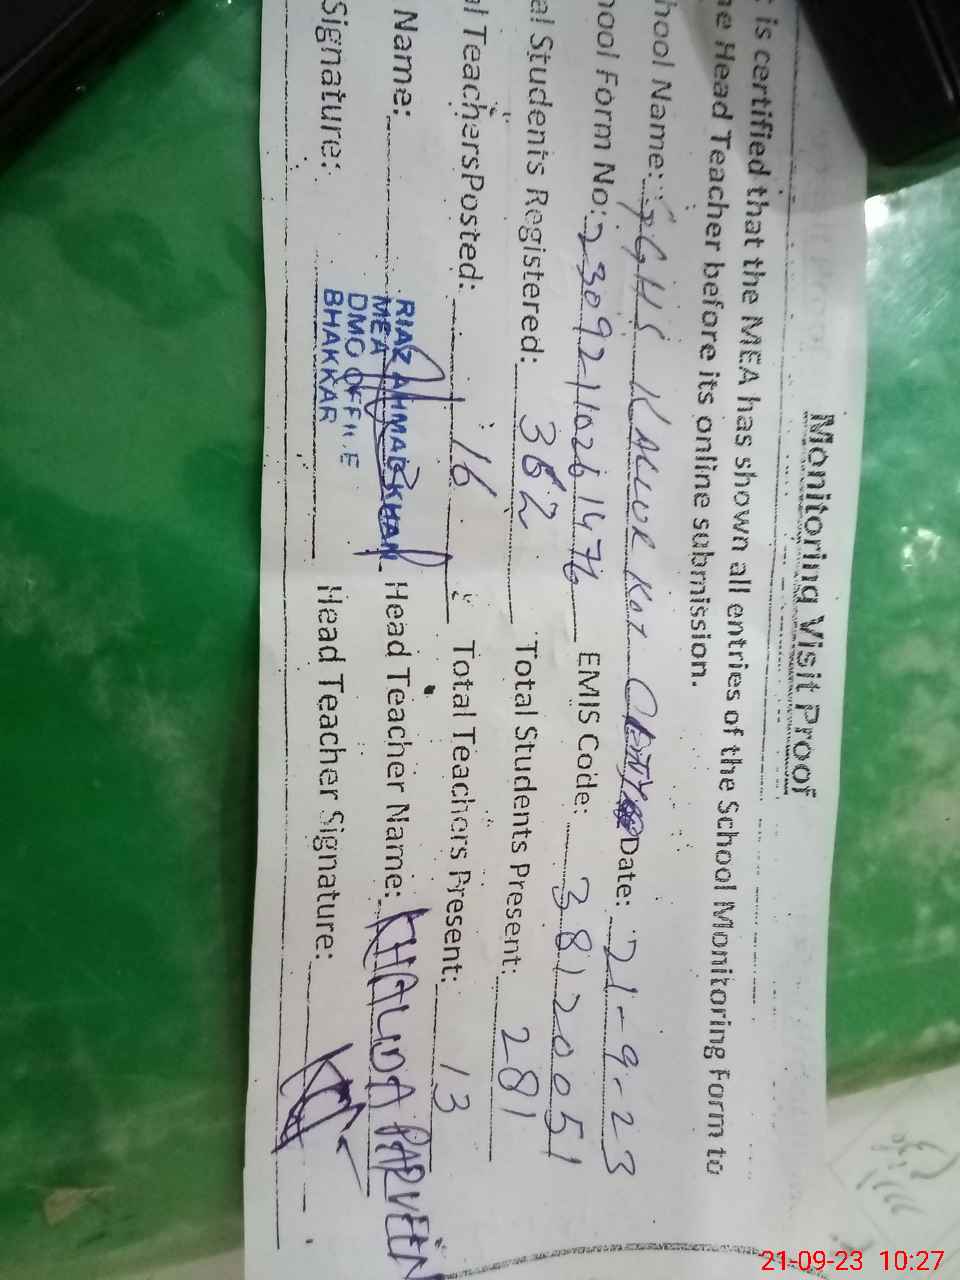 Monitoring Visit Proof
is certified that the MEA has shown all entries of the School Monitoring Form to
he Head Teacher before its online submission.
hool Name: GGHS KALLUR KOT Date: 21-9-23
hool Form No: 23092110261476 EMIS Code: 38120051
al Students Registered: 362 Total Students Present: 281
al Teachers Posted: 16 Total Teachers Present: 13
Name: RIAZ AHMAD KHAN Head Teacher Name: KHALIDA PARVEEN
MEA
DMO OFFICE
BHAKKAR
Signature: Head Teacher Signature:
21-09-23 10:27